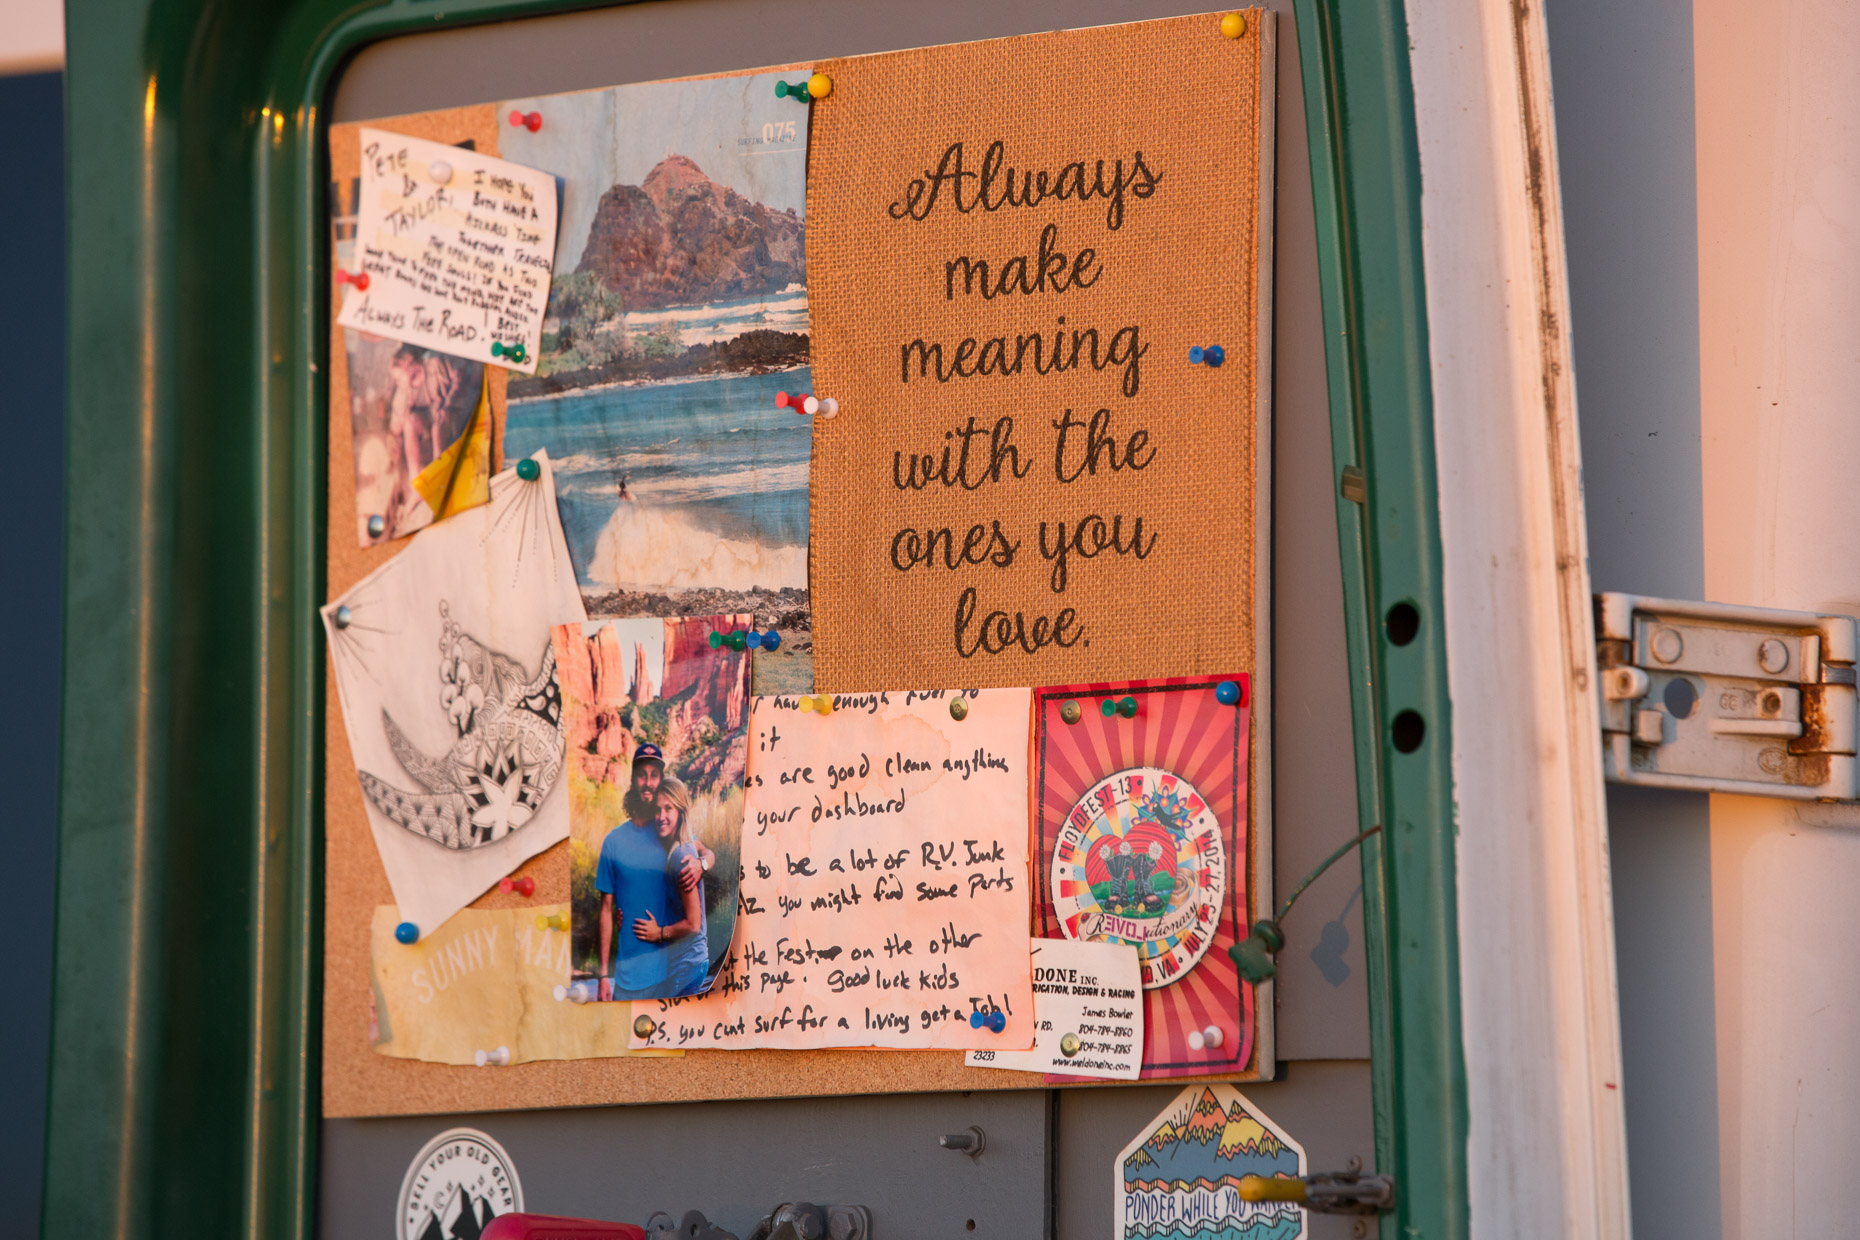 PETE
&
TAYLOR,
I HOPE YOU
BOTH HAVE A
TIME
TOGETHER TRAVELING
THE OPEN ROAD AS THIS
ALWAYS THE ROAD.
BEST
WISHES!
075
SURFING MAGAZINE
Always
make
meaning
with the
ones you
love.
SUNNY
have enough fuel to
it
are good clean anything
your dashboard
to be a lot of R.V. Junk
you might find some parts
the Fest on the other
this page. Good luck kids
P.S. you cant surf for a living get a Job!
FLOYDFEST-13
REVOLutionary
VA • JULY 23-27, 2014
DONE INC.
RICATION, DESIGN & RACING
James Bowler
RD.
804-784-8860
804-784-8865
23233
www.weldoneinc.com
SELL YOUR OLD GEAR
PONDER WHILE YOU WANDER